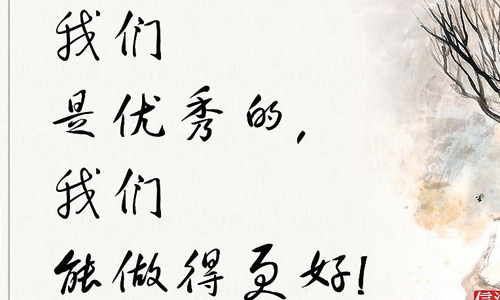 我们
是优秀的,
我们
能做得更好!